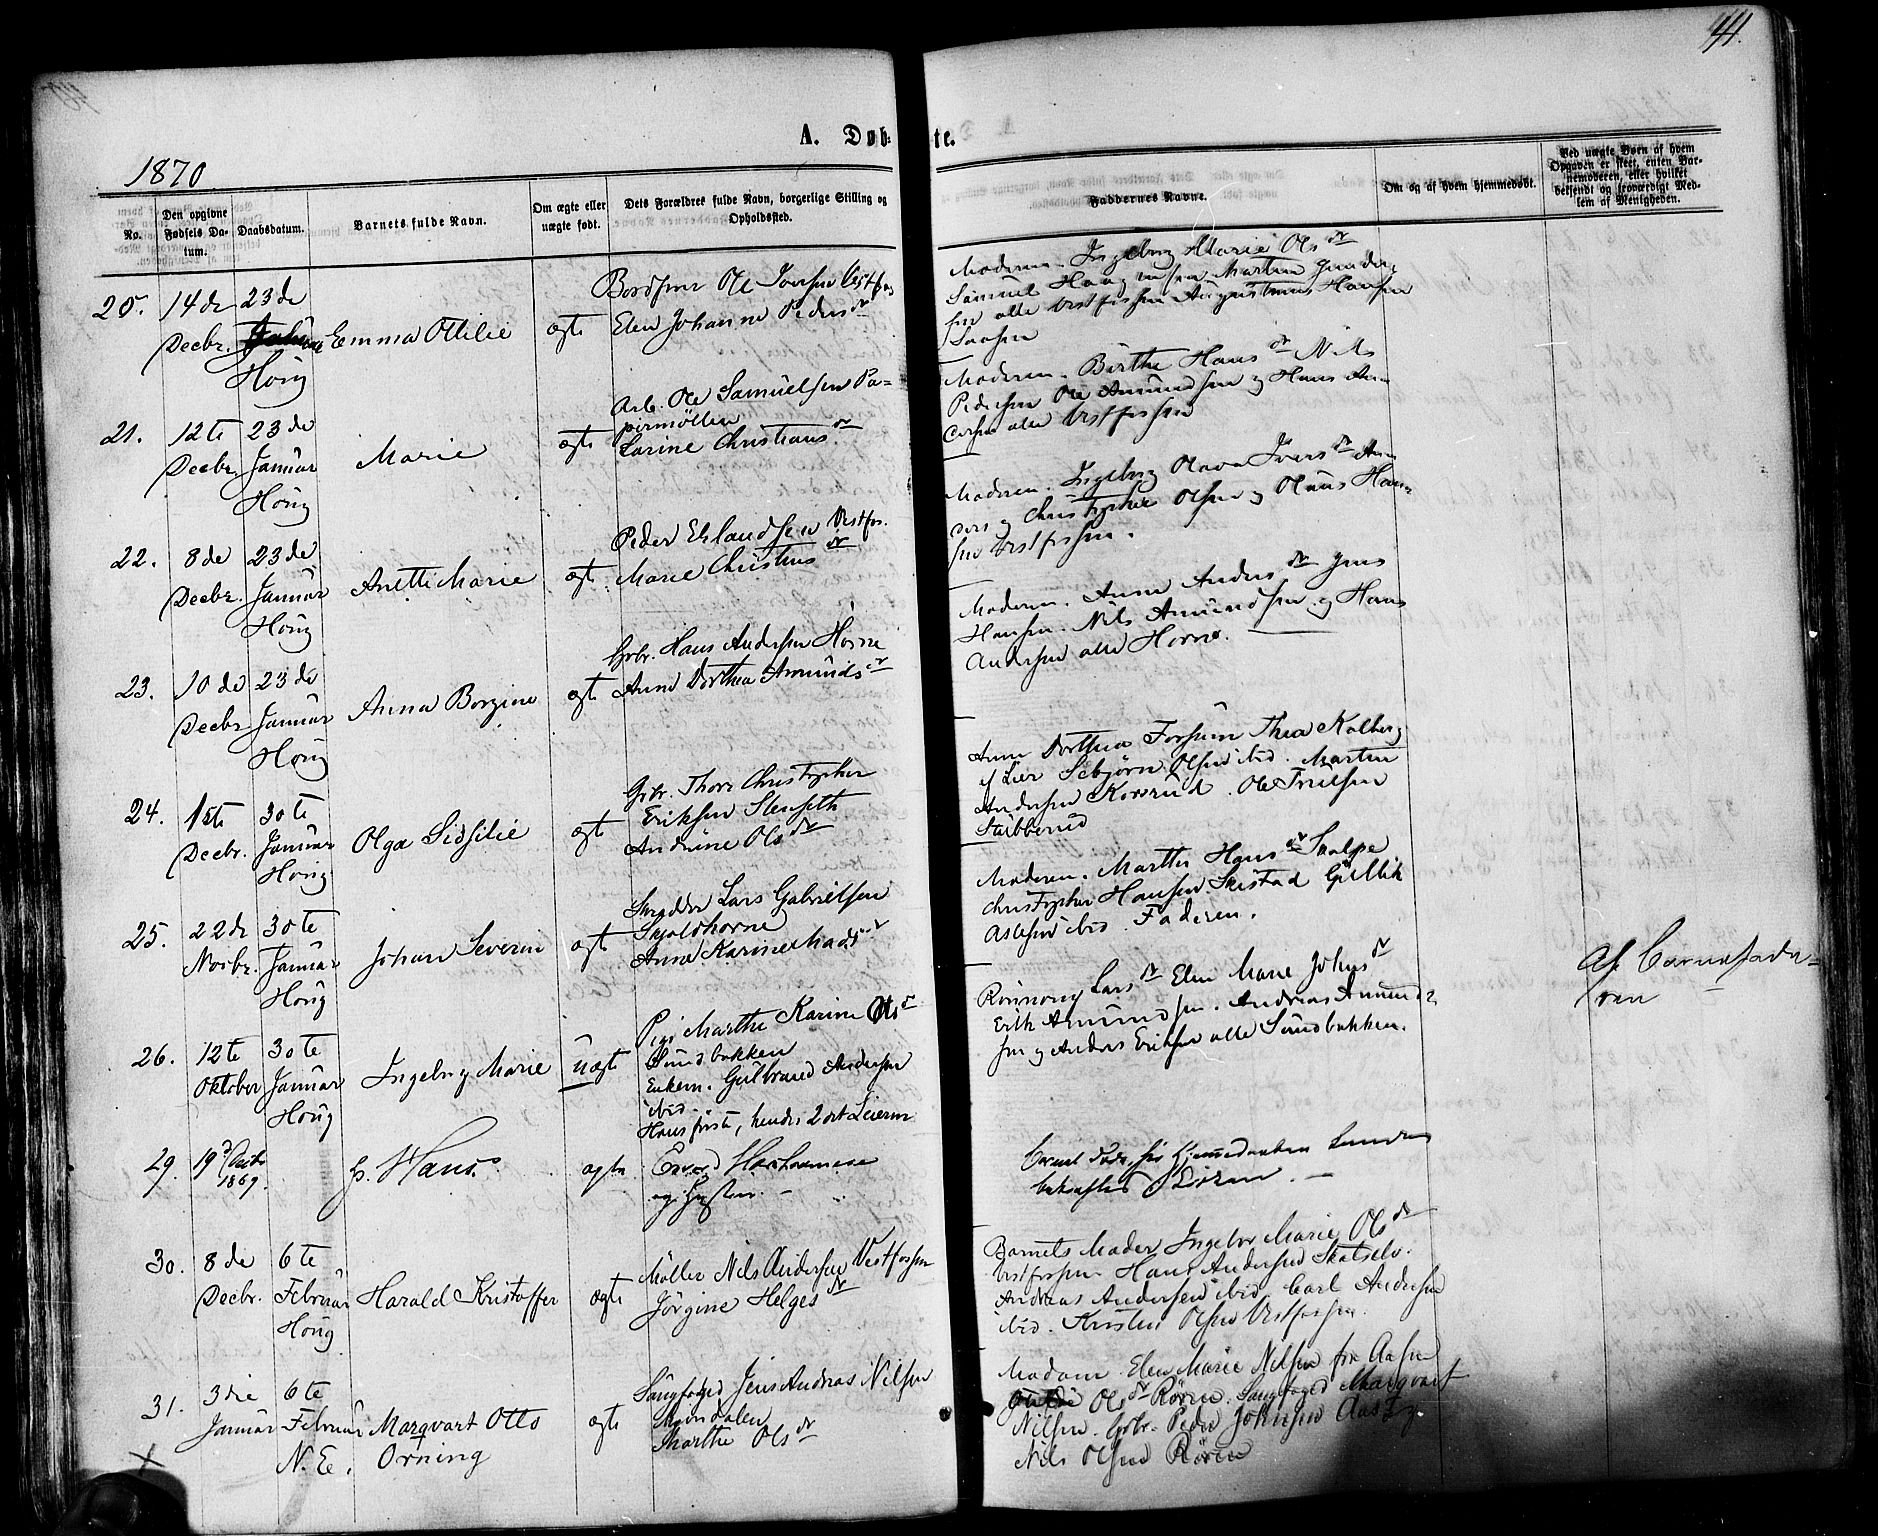 41.
A. Døbte.
1870
No.
Den opgivne Fødsels Datum.
Daabsdatum.
Barnets fulde Navn.
Om ægte eller uægte født.
Dets Forældres fulde Navn, borgerlige Stilling og Opholdssted.
Faddernes Navne.
Om og af hvem hjemmedøbt.
Ved uægte Børn af hvem Opgaven er skeet, enten Barnemoderen, eller hvilket bekjendt og troværdigt Medlem af Menigheden.
20.
14de
Decbr.
23de
Houg
Emma Ottilie
ægte
Ole Vestfos
Elen Johanne Pedersdr
Moderen. Ingeborg Marie Olsdr
Samuel Martin
alle Vestfossen Augustinus Hansen
21.
12te
Decbr.
23de
Januar
Houg
Marie
ægte
Arb. Ole Samuelsen Pa-
pirmøllen
Larine Christiansdr
Moderen. Birthe Hansdr Nils
Pedersen Ole Amundsen og Hans An-
dersen alle Vestfossen
22.
8de
Decbr.
23de
Januar
Houg
Anetti Marie
ægt
Peder Erlandsen Vestfos.
Marie Christiansdr
Moderen. Ingeborg Olava Iversdr An-
ders og Christopher Olsen og Olaus Han-
sen Vestfossen.
23.
10de
Decbr
23de
Januar
Houg
Anna Borgine
ægt
Grbr. Hans Andersen Horne
Anne Dorthea Amundsdr
Moderen. Anne Andersdr Jens
Hansen. Nils Amundsen og Hans
Andersen alle Horne.
24.
1ste
Decbr.
30te
Januar
Houg
Olga Sidsilie
ægt
Grbr. Thore Christopher
Eriksen Stenseth
Andrine Olsdr
Anne Dorthea Forsum Thea Kolberg
af Lier Sebjørn Olsen ibid. Martin
Andersen Korsrud. Ole Truelsen
Stubberud
25.
22de
Novbr.
30te
Januar
Houg
Johan Severin
ægt
Skrædder Lars Gabrielsen
Skjoldhorne
Anne Karine Madsdr
Moderen. Marthe Hansdr
Christopher Hansen Skistad Gullik
Aslesen ibid. Faderen.
26.
12te
Oktober
30te
Januar
Houg
Ingeborg Marie
uægte
Pige Marthe Karine Olsdr
Sundbakken
Enkem. Gulbrand Andersen
ibid.
Hans første, hendes 2det Leierm
Rønnoug Larsdr Elen Marie Johnsdr
Erik Amundsen. Andreas Amund-
sen og Anders Eriksen alle Sundbakken.
Af Barnefade-
ren
29.
19de Decbr
1869.
Hans.
ægte
og Hustru. -
Barnet døde før Hjemmedaaben kunde
bekræftes i Kirken. -
30.
8de
Decbr.
6te
Februar
Houg
Harald Kristoffer
ægte
Møller Nils Andersen Vestfossen
Jørgine Helgesdr
Barnets Moder Ingebor Marie Olsdr
Vestfossen Hans Andersen Skotselv.
Andreas Andersen ibid. Carl Andersen
ibid. Kristen Olsen Vestfossen.
31.
3die
Januar
6te
Februar
N.E.
Marqvart Otto
Orning
ægte
Sangfoged Jens Andreas Nilsen
Ravndalen
Marthe Olsdr
Madam Elen Marie Nilsen fra Aasen
Olsdr Røren. Marqvart
Nilsen. Grbr. Peder Johnsen Aasby
Nils Olsen Røren
X